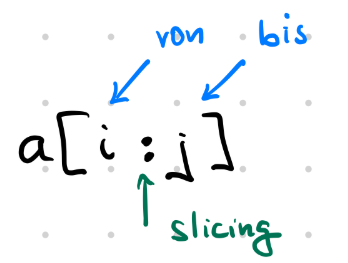 von bis
a[i:j]
slicing